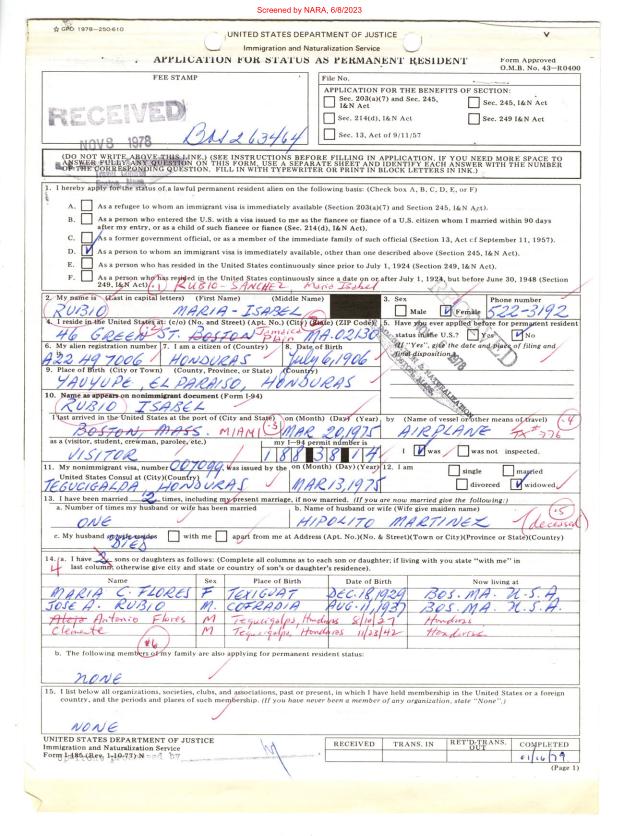 Screened by NARA, 6/8/2023
☆ GPO 1978-250-610
UNITED STATES DEPARTMENT OF JUSTICE
Immigration and Naturalization Service
APPLICATION FOR STATUS AS PERMANENT RESIDENT
Form Approved
O.M.B. No. 43-R0400
FEE STAMP
File No.
APPLICATION FOR THE BENEFITS OF SECTION:
Sec. 203(a)(7) and Sec. 245, I&N Act
Sec. 245, I&N Act
Sec. 214(d), I&N Act
Sec. 249 I&N Act
Sec. 13, Act of 9/11/57
RECEIVED
NOV 8 1978
BOS 263464
(DO NOT WRITE ABOVE THIS LINE.) (SEE INSTRUCTIONS BEFORE FILLING IN APPLICATION. IF YOU NEED MORE SPACE TO
ANSWER FULLY ANY QUESTION ON THIS FORM, USE A SEPARATE SHEET AND IDENTIFY EACH ANSWER WITH THE NUMBER
OF THE CORRESPONDING QUESTION. FILL IN WITH TYPEWRITER OR PRINT IN BLOCK LETTERS IN INK.)
1. I hereby apply for the status of a lawful permanent resident alien on the following basis: (Check box A, B, C, D, E, or F)
A. As a refugee to whom an immigrant visa is immediately available (Section 203(a)(7) and Section 245, I&N Act).
B. As a person who entered the U.S. with a visa issued to me as the fiancee or fiance of a U.S. citizen whom I married within 90 days
after my entry, or as a child of such fiancee or fiance (Sec. 214(d), I&N Act).
C. As a former government official, or as a member of the immediate family of such official (Section 13, Act of September 11, 1957).
D. As a person to whom an immigrant visa is immediately available, other than one described above (Section 245, I&N Act).
E. As a person who has resided in the United States continuously since prior to July 1, 1924 (Section 249, I&N Act).
F. As a person who has resided in the United States continuously since a date on or after July 1, 1924, but before June 30, 1948 (Section
249, I&N Act)
RUBIO-SANCHEZ Maria Isabel
2. My name is (Last in capital letters) (First Name) (Middle Name)
RUBIO MARIA-ISABEL
3. Sex
Male Female
Phone number
522-3192
4. I reside in the United States at: (c/o) (No. and Street) (Apt. No.) (City) (State) (ZIP Code)
46 GREEN ST. BOSTON Jamaica Plain MA. 02130
5. Have you ever applied before for permanent resident
status in the U.S.? Yes No
(If "Yes", give the date and place of filing and
final disposition.)
6. My alien registration number
A22 497006
7. I am a citizen of (Country)
HONDURAS
8. Date of Birth
July 6, 1906
9. Place of Birth (City or Town) (County, Province, or State) (Country)
YAUYUPE, EL PARAISO, HONDURAS
10. Name as appears on nonimmigrant document (Form I-94)
RUBIO ISABEL
I last arrived in the United States at the port of (City and State) on (Month) (Day) (Year) by (Name of vessel or other means of travel)
BOSTON, MASS. MIAMI MAR 20, 1975 AIRPLANE TX# 776
as a (visitor, student, crewman, parolee, etc.)
VISITOR
my I-94 permit number is
I was was not inspected.
11. My nonimmigrant visa, number 007099, was issued by the
United States Consul at (City)(Country)
TEGUCIGALPA HONDURAS
on (Month) (Day) (Year)
MAR 13, 1975
12. I am
single married
divorced widowed
13. I have been married 2 times, including my present marriage, if now married. (If you are now married give the following:)
a. Number of times my husband or wife has been married
ONE
b. Name of husband or wife (Wife give maiden name)
HIPOLITO MARTINEZ (deceased)
c. My husband or wife resides with me apart from me at Address (Apt. No.)(No. & Street)(Town or City)(Province or State)(Country)
DIED
14. a. I have 4 sons or daughters as follows: (Complete all columns as to each son or daughter; if living with you state "with me" in
last column; otherwise give city and state or country of son's or daughter's residence).
Name Sex Place of Birth Date of Birth Now living at
MARIA C. FLORES F TEXIGUAT DEC. 18, 1929 BOS. MA. U.S.A
JOSE A. RUBIO M. COFRADIA AUG. 11, 1937 BOS. MA. U.S.A.
Antonio Flores M Tegucigalpa, Honduras 8/10/27 Honduras
Clemente M Tegucigalpa, Honduras 11/23/42 Honduras
#6
b. The following members of my family are also applying for permanent resident status:
NONE
15. I list below all organizations, societies, clubs, and associations, past or present, in which I have held membership in the United States or a foreign
country, and the periods and places of such membership. (If you have never been a member of any organization, state "None".)
NONE
UNITED STATES DEPARTMENT OF JUSTICE
Immigration and Naturalization Service
Form I-485 (Rev. 1-10-77) N
RECEIVED TRANS. IN RET'D-TRANS. OUT COMPLETED
01/16/79
(Page 1)